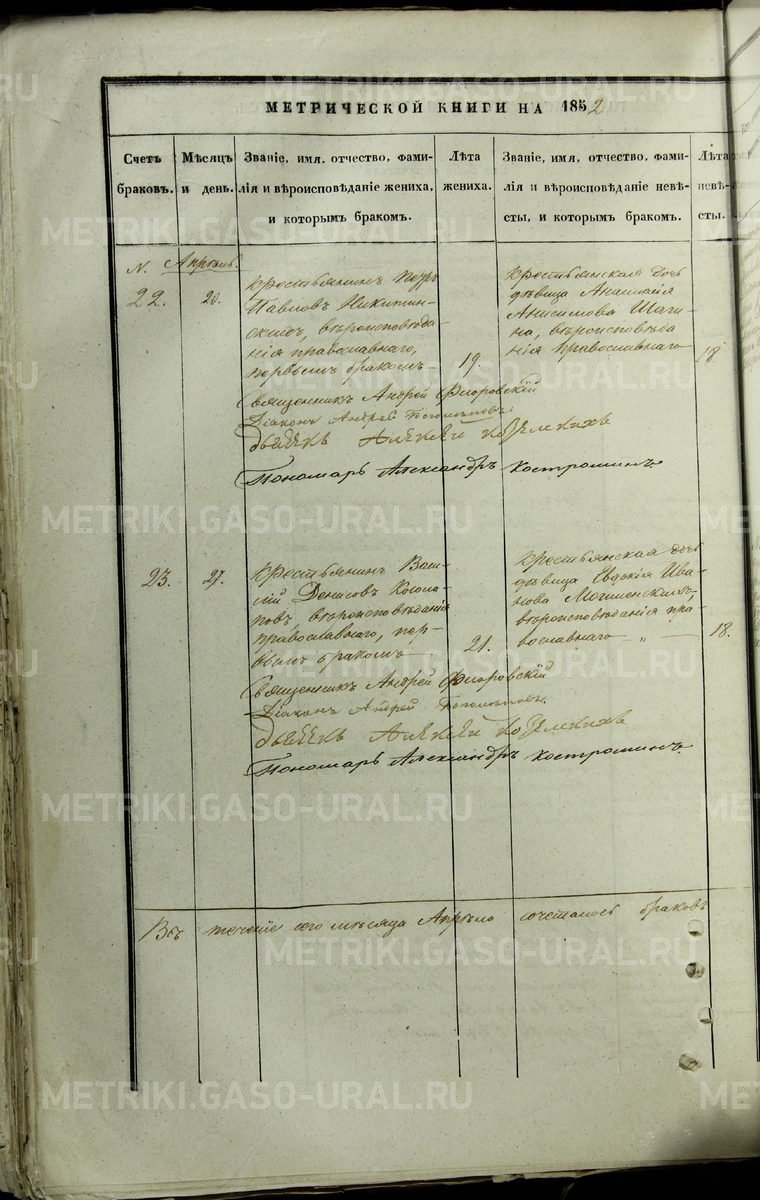 МЕТРИЧЕСКОЙ КНИГИ НА 1852
Счетъ браковъ.
Мѣсяцъ и день.
Званіе, имя, отчество, фами-
лія и вѣроисповѣданіе жениха,
и которымъ бракомъ.
Лѣта
жениха.
Званіе, имя, отчество, фами-
лія и вѣроисповѣданіе невѣ-
сты, и которымъ бракомъ.
Лѣта
невѣ-
сты.
N. Апрѣль.
22.
20.
Крестьянинъ Петръ
Павловъ Никитин-
скихъ, вѣроисповѣда-
нія православнаго,
первымъ бракомъ
19.
Крестьянская дочь
дѣвица Анастасія
Анисимова Шаги-
на, вѣроисповѣда
нія православнаго
18
Священникъ Андрей Флоровскій
Діаконъ Андрей
Дьячекъ Алексѣй Козелкихъ
Пономарь Александръ Костроминъ.
23.
27.
Крестьянинъ Васи-
лій Денисовъ Косола-
повъ, вѣроисповѣданія
православнаго, пер-
вымъ бракомъ
21.
Крестьянская дочь
дѣвица Евдокія Ива-
нова вѣроисповѣданія пра-
вославнаго „
18.
Священникъ Андрей Флоровскій
Діаконъ Андрей
Дьячекъ Алексѣй Козелкихъ
Пономарь Александръ Костроминъ.
Въ теченіе сего мѣсяца Апрѣля сочеталось браковъ
METRIKI.GASO-URAL.RU